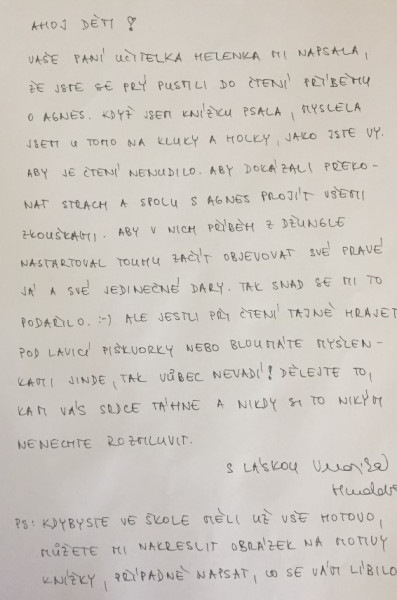 AHOJ DĚTI!
VAŠE PANÍ UČITELKA HELENKA MI NAPSALA,
ŽE JSTE SE PRÝ PUSTILI DO ČTENÍ PŘÍBĚHU
O AGNES. KDYŽ JSEM KNÍŽKU PSALA, MYSLELA
JSEM U TOHO NA KLUKY A HOLKY, JAKO JSTE VY.
ABY JE ČTENÍ NENUDILO. ABY DOKÁZALI PŘEKO-
NAT STRACH A SPOLU S AGNES PROJÍT VŠEMI
ZKOUŠKAMI. ABY V NICH PŘÍBĚH Z DŽUNGLE
NASTARTOVAL TOUHU ZAČÍT OBJEVOVAT SVÉ PRAVÉ
JÁ A SVÉ JEDINEČNÉ DARY. TAK SNAD SE MI TO
PODAŘILO. :-) ALE JESTLI PŘI ČTENÍ TAJNĚ HRAJETE
POD LAVICÍ PIŠKVORKY NEBO BLOUMÁTE MYŠLEN-
KAMI JINDE, TAK VŮBEC NEVADÍ! DĚLEJTE TO,
KAM VÁS SRDCE TÁHNE A NIKDY SI TO NIKÝM
NENECHTE ROZMLUVIT.
S LÁSKOU
PS: KDYBYSTE VE ŠKOLE MĚLI UŽ VŠE HOTOVO,
MŮŽETE MI NAKRESLIT OBRÁZEK NA MOTIVY
KNÍŽKY, PŘÍPADNĚ NAPSAT, CO SE VÁM LÍBILO